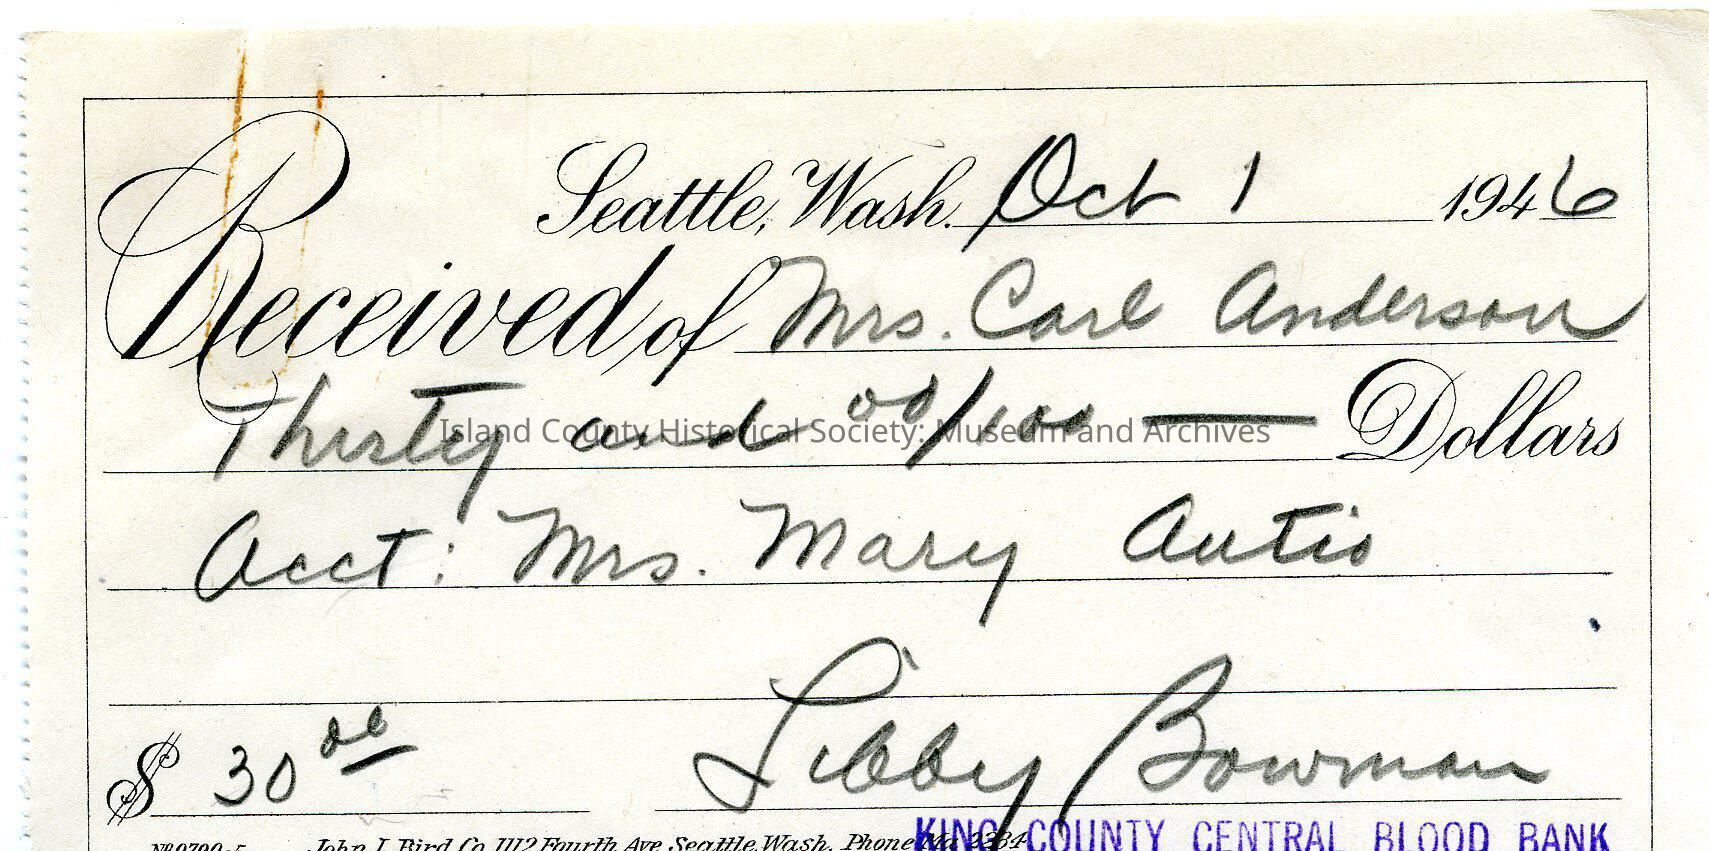 Seattle, Wash. Oct 1 1946
Received of Mrs. Carl Anderson
Thirty and 00/100 — Dollars
Island County Historical Society: Museum and Archives
Acct: Mrs. Mary Autio
$ 30 00 Libby Bowman
John J. Bird Co. 1112 Fourth Ave Seattle, Wash. Phone
KING COUNTY CENTRAL BLOOD BANK